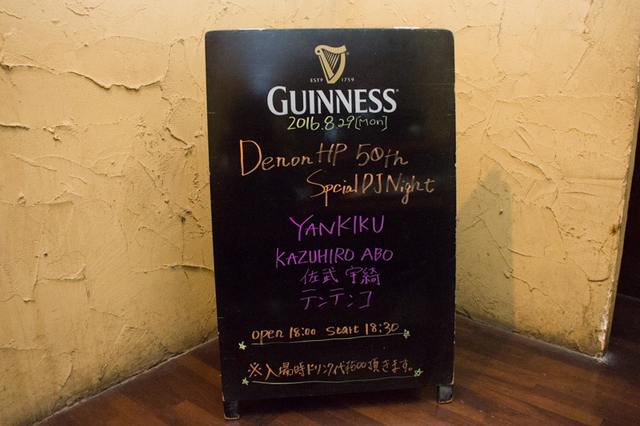 ESTD 1759
GUINNESS
2016.8.29[Mon]
Denon HP 50th
Spcial DJ Night
YANKIKU
KAZUHIRO ABO
佐武 宇綺
テンテンコ
open 18:00 start 18:30
※入場時ドリンク代¥500頂きます。